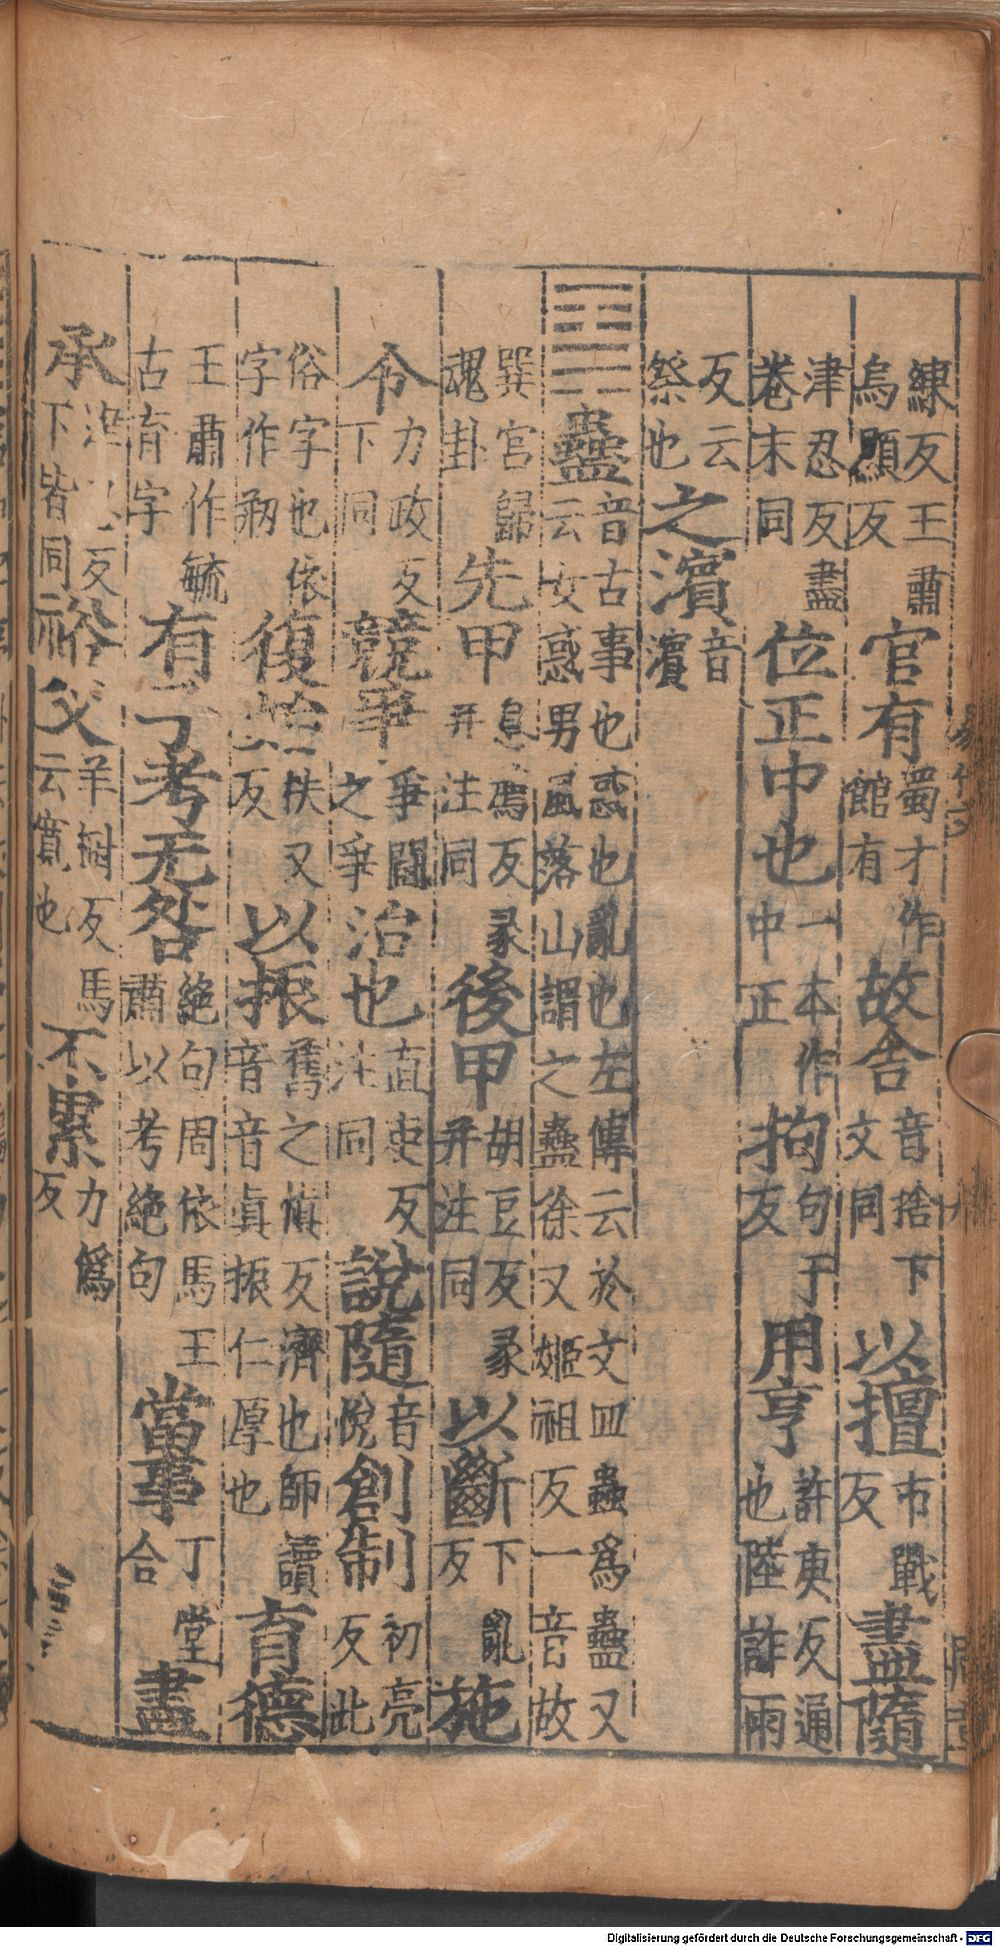 練反王肅烏顯反官有蜀才作館有故舍音捨下文同以擅市戰反盡隨
津忍反盡卷末同位正中也一本作中正拘句于反用亨許庚反通也陸許兩
反云祭也之濱音濱
蠱音古事也惑也亂也左傳云於文皿蟲爲蠱又云女惑男風落山謂之蠱徐又姬祖反一音故
巽宮歸魂卦先甲息薦反彖并注同後甲胡豆反彖并注同以斷下亂反施
令力政反下同競爭爭鬪之爭治也直吏反注同說隨音悅創制初亮反此
俗字也依字作剏復始扶又反以振舊之慎反濟也師讀音音眞振仁厚也育德
王肅作毓古育字有子考无咎絶句周依馬王肅以考絶句當事丁堂合盡
承津反下皆同裕父羊樹反馬云寬也不累力僞反
Digitalisierung gefördert durch die Deutsche Forschungsgemeinschaft - DFG